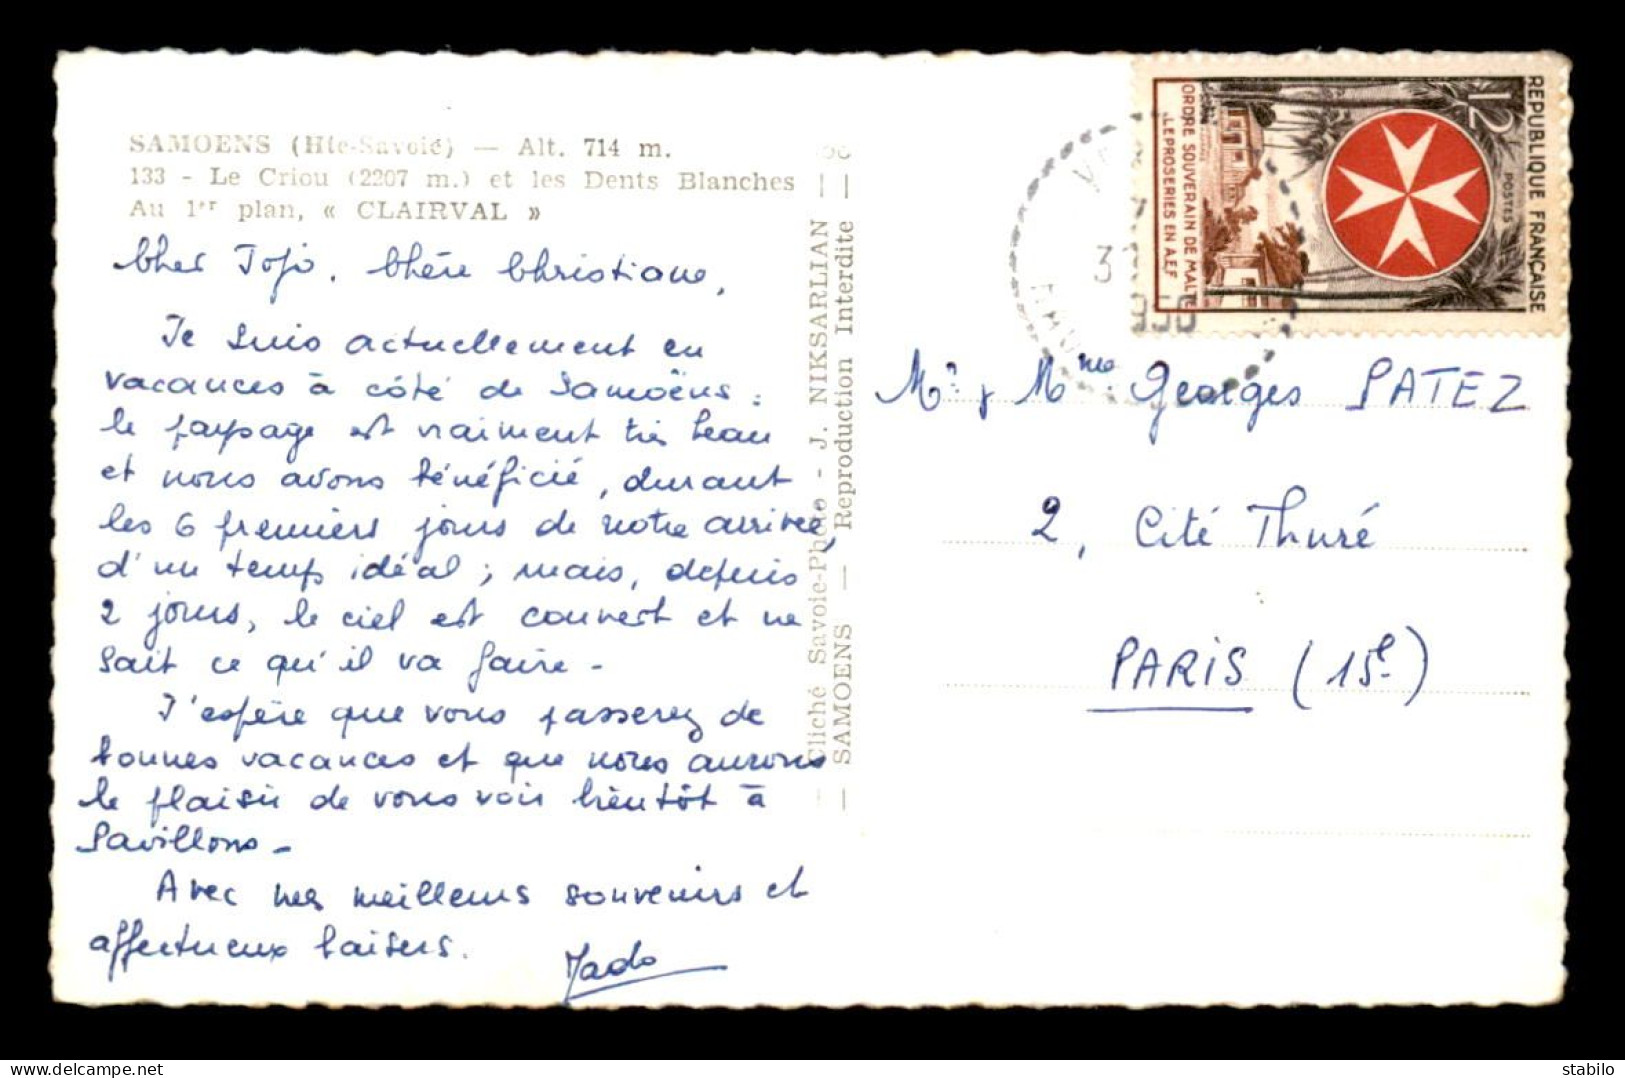 SAMOENS (Hte-Savoie) — Alt. 714 m.
133 - Le Criou (2207 m.) et les Dents Blanches
Au 1er plan, « CLAIRVAL »
Cher Jojo, Chère Christiane,
Je suis actuellement en
vacances à côté de Samoëns :
le paysage est vraiment très beau
et nous avons bénéficié, durant
les 6 premiers jours de notre arrivée,
d'un temps idéal ; mais, depuis
2 jours, le ciel est couvert et ne
sait ce qu'il va faire -
J'espère que vous passerez de
bonnes vacances et que nous aurons
le plaisir de vous voir bientôt à
Pavillons -
Avec mes meilleurs souvenirs et
affectueux baisers.
Jado
Cliché Savoie-Photo - J. NIKSARLIAN —
— SAMOENS — Reproduction Interdite —
REPUBLIQUE FRANÇAISE
POSTES
12
ORDRE SOUVERAIN DE MALTE
LEPROSERIES EN A.E.F
Mr & Mme Georges PATEZ
2, Cité Thuré
PARIS (15e)
delcampe.net
zibeline